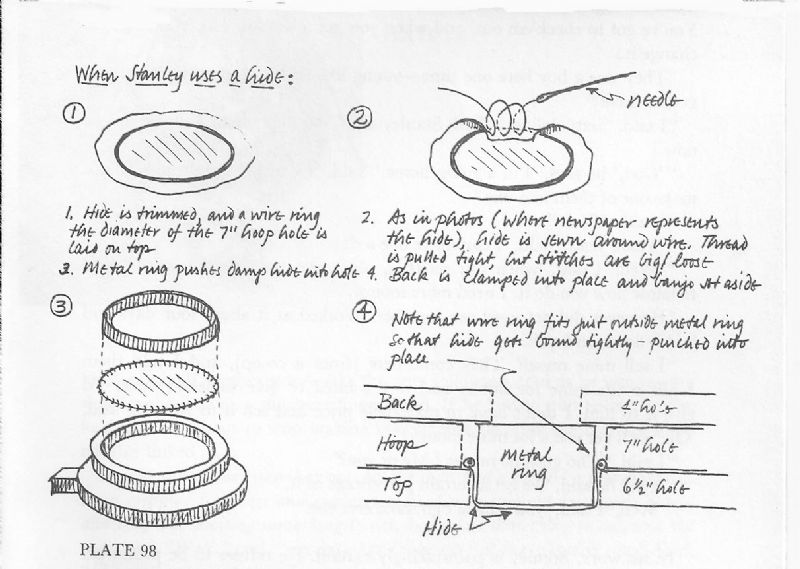 When Stanley uses a hide:
①
②
NEEDLE
1. Hide is trimmed, and a wire ring
the diameter of the 7" hoop hole is
laid on top
2. As in photos (where newspaper represents
the hide), hide is sewn around wire. Thread
is pulled tight, but stitches are big/loose
3. Metal ring pushes damp hide into hole
4. Back is clamped into place and banjo set aside
③
④
Note that wire ring fits just outside metal ring
so that hide gets bound tightly - punched into
place
Back
4" hole
Hoop
7" hole
metal
ring
Top
6½" hole
Hide
PLATE 98